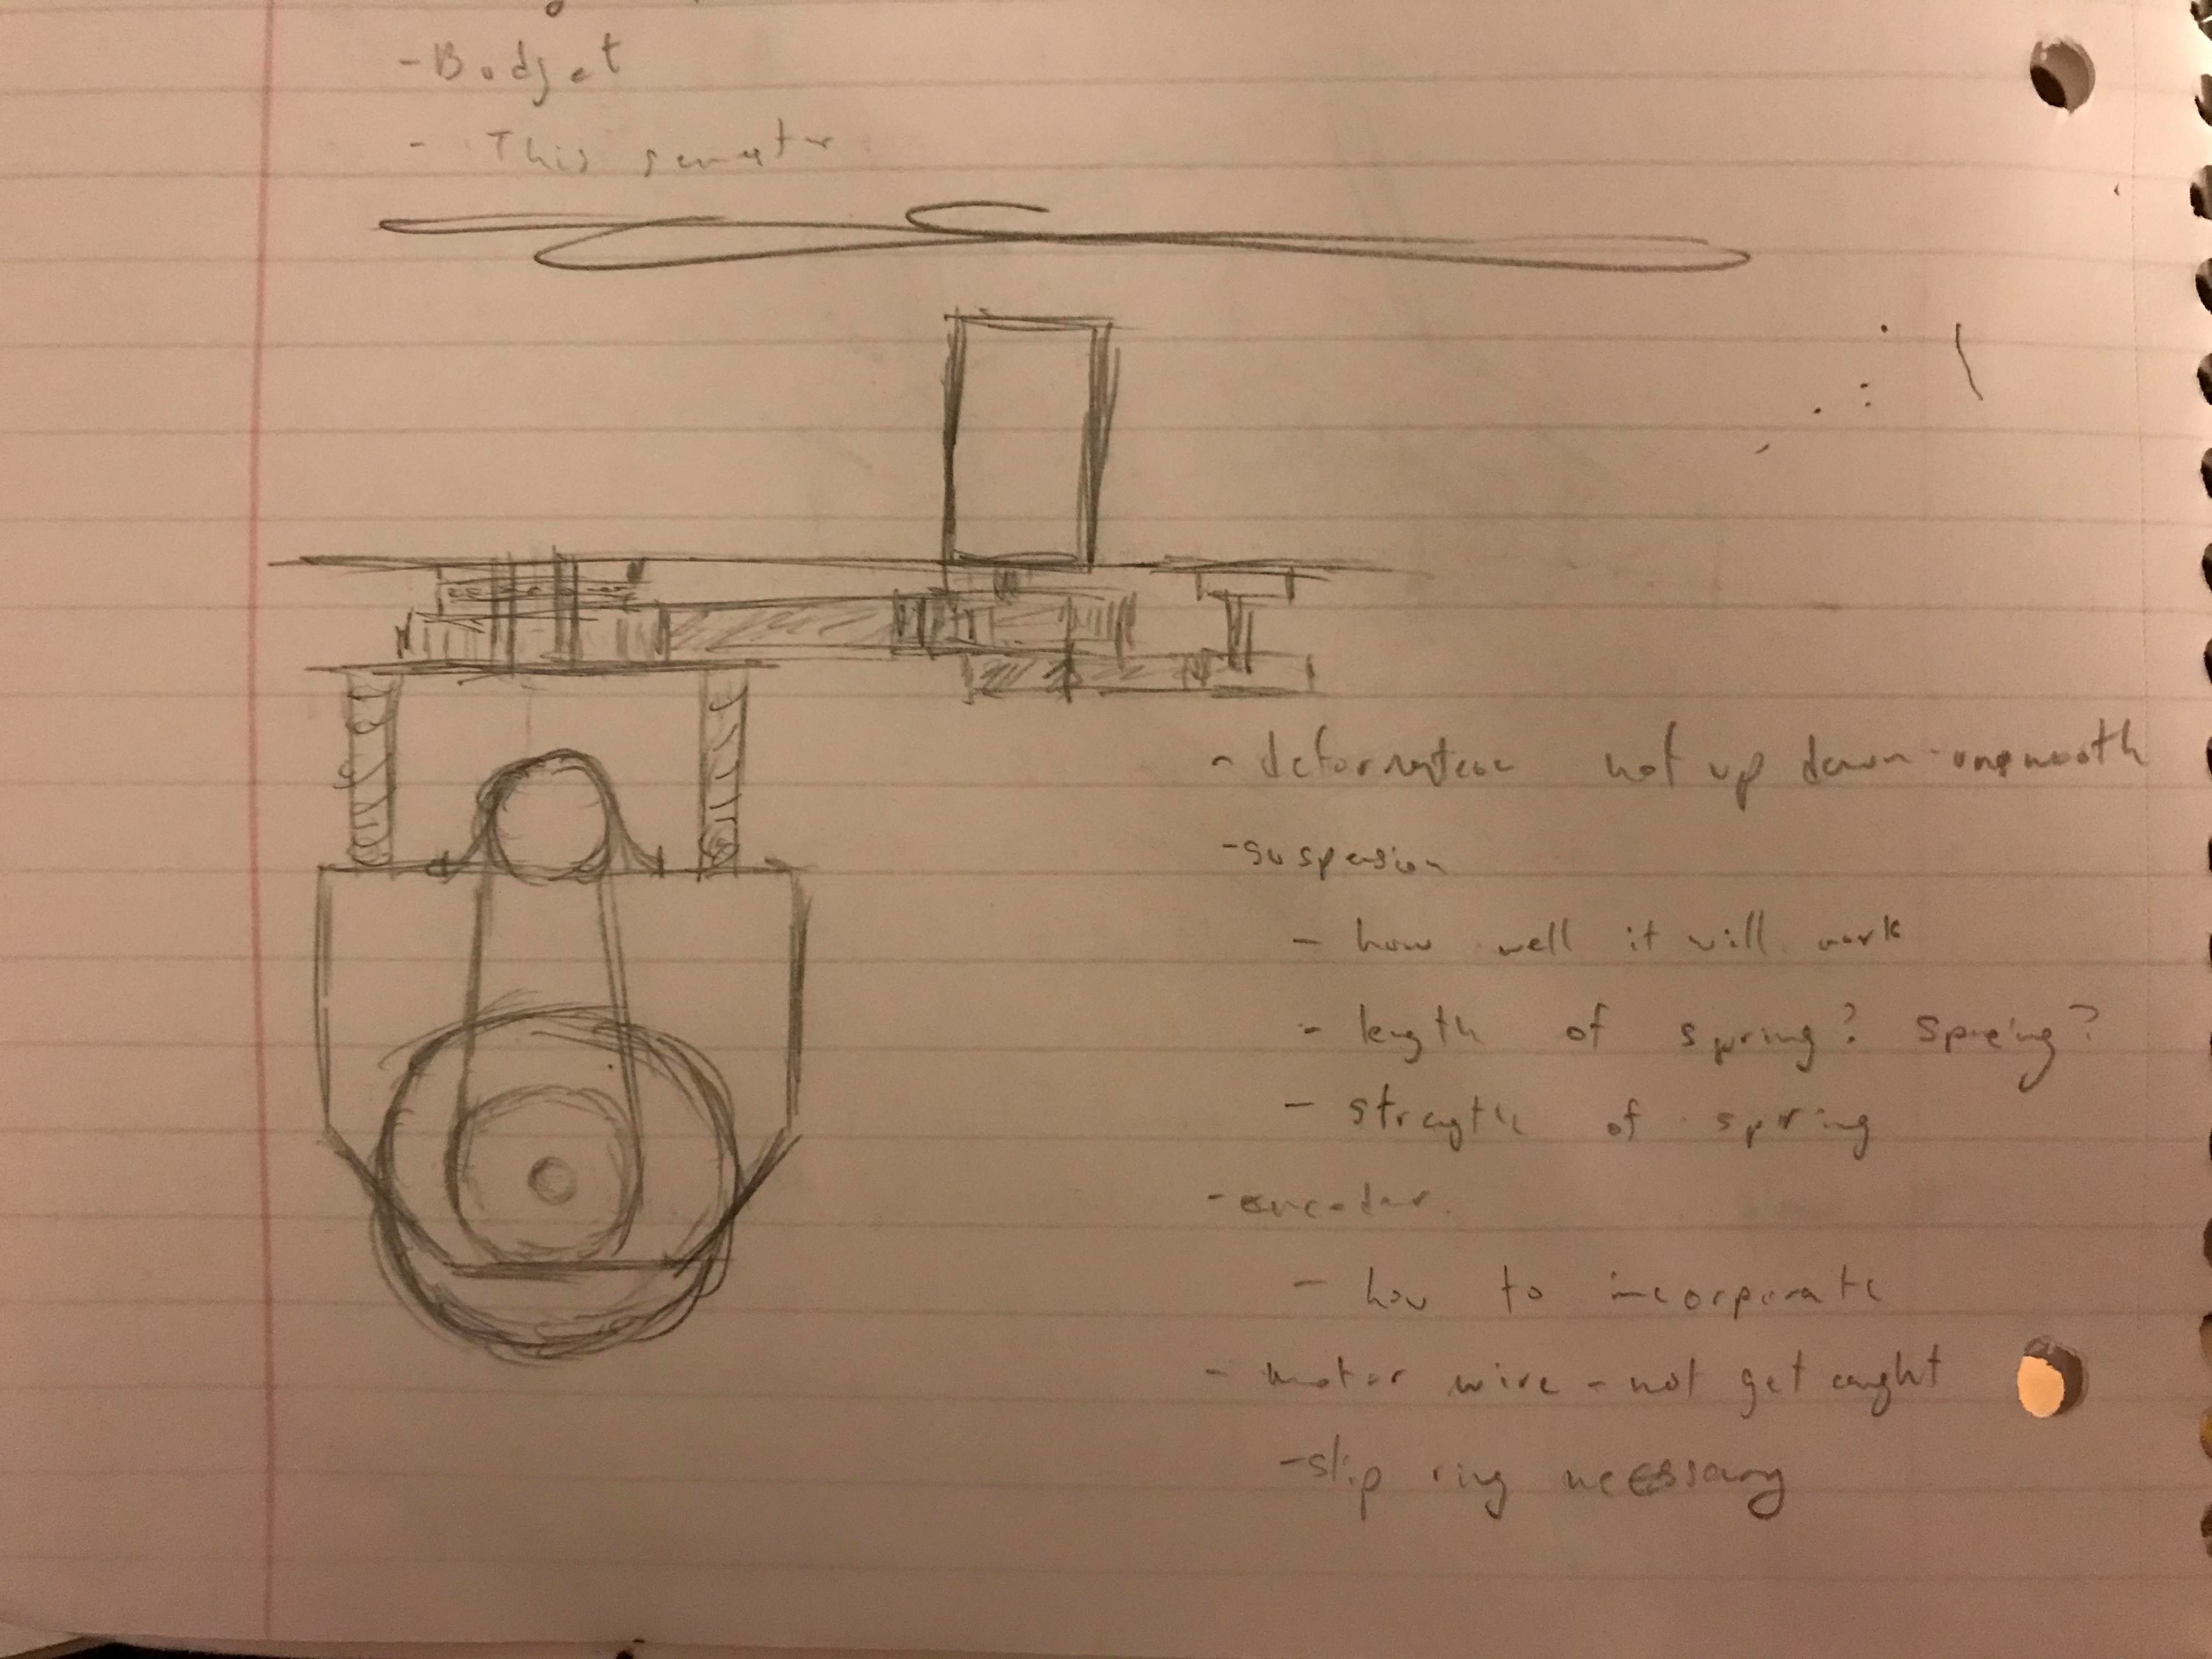 - Budget
- This semester
- deformation not up down - unsmooth
- suspension
- how well it will work
- length of spring? spring?
- strength of spring
- encoder
- how to incorporate
- motor wire - not get caught
- slip ring necessary